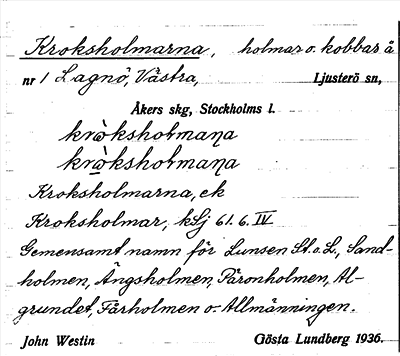 Kroksholmarna, holmar o. kobbar å
nr 1 Lagnö, Västra, Ljusterö sn,
Åkers skg, Stockholms l.
krò̀ksholmaṇa
krò̀ksholmaṇa
Kroksholmarna, ek
Kroksholmar, kSj 61. 6. IV
Gemensamt namn för Lunsen St. o. L., Sand-
holmen, Ängsholmen, Päronholmen, Al-
grundet, Fårholmen o. Allmänningen.
John Westin Gösta Lundberg 1936.